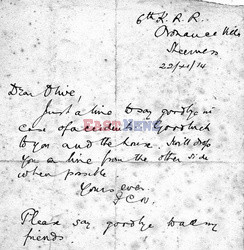 6th K. R. R.
Ordnance Hills
Sheerness
22/ /14
Dear Olive,
Just a line to say goodbye in
case of accidents. Good luck
to you and the house. I will drop
you a line from the other side
when possible
Yours ever
Please say goodbye to all my
friends.
EAST NEWS